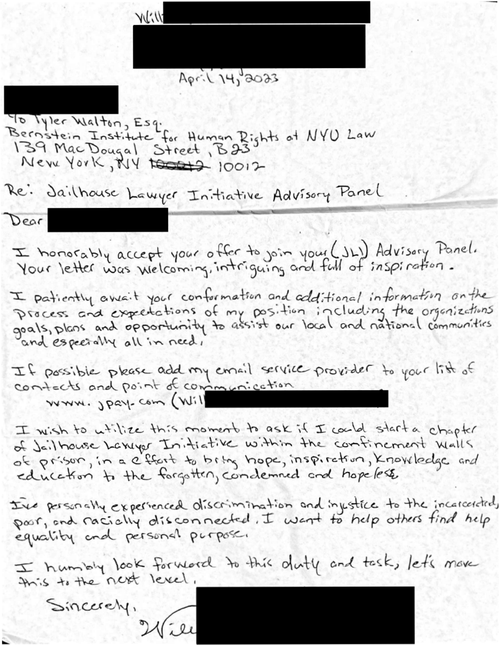 Willi
April 14, 2023
℅ Tyler Walton, Esq.
Bernstein Institute for Human Rights at NYU Law
139 MacDougal Street, B23
New York, NY 10012 10012
Re: Jailhouse Lawyer Initiative Advisory Panel
Dear
I honorably accept your offer to join your (JLI) Advisory Panel.
Your letter was welcoming, intriguing and full of inspiration.
I patiently await your conformation and additional information on the
process and expectations of my position including the organizations
goals, plans and opportunity to assist our local and national communities
and especially all in need.
If possible please add my email service provider to your list of
contacts and point of communication
www.jpay.com (Will
I wish to utilize this moment to ask if I could start a chapter
of Jailhouse Lawyer Initiative within the confinement walls
of prison, in a effort to bring hope, inspiration, knowledge and
education to the forgotten, condemned and hopeless.
I've personally experienced discrimination and injustice to the incarcerated,
poor, and racially disconnected. I want to help others find help
equality and personal purpose.
I humbly look forward to this duty and task, let's move
this to the next level.
Sincerely,
Will